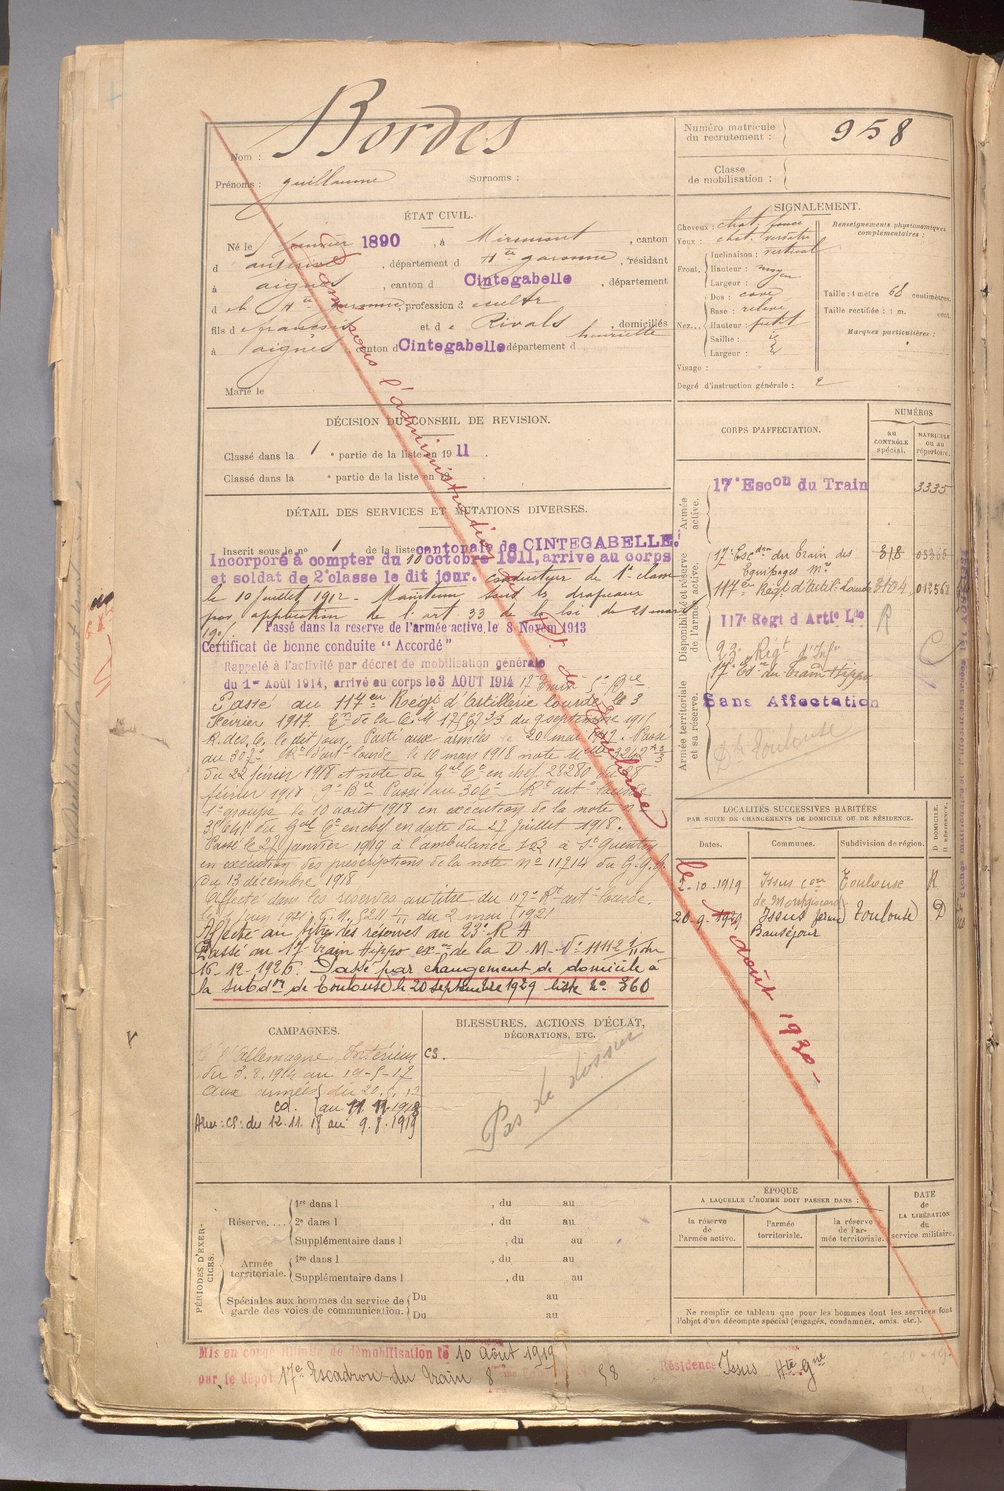 Nom : Bordes
Prénoms : guillaume Surnoms :
Numéro matricule du recrutement : 958
Classe de mobilisation :
ÉTAT CIVIL.
Né le 1890, à Miremont, canton
d auterive, département d Hte garonne, résidant
à aignes, canton d Cintegabelle, département
d et Hte garonne, profession de cultr
fils de françois et de Rivals henriette, domiciliés
à aignes canton d Cintegabelle département d
Marié le
SIGNALEMENT.
Cheveux : chat. foncé
Yeux : chat. verdatre
Front. Inclinaison : vertical
Hauteur : moy
Largeur :
Nez... Dos : cave
Base : relevé
Hauteur : petit
Saillie :
Largeur :
Visage :
Degré d'instruction générale : 2
Renseignements physionomiques complémentaires :
Taille : 1 mètre 68 centimètres.
Taille rectifiée : 1 m. cent.
Marques particulières :
DÉCISION DU CONSEIL DE REVISION.
Classé dans la 1e partie de la liste en 1911.
Classé dans la e partie de la liste en 19
DÉTAIL DES SERVICES ET MUTATIONS DIVERSES.
Inscrit sous le no 1 de la liste cantonale de CINTEGABELLE.
Incorporé à compter du 10 octobre 1911, arrivé au corps
et soldat de 2e classe le dit jour. Conducteur de 1e classe
le 10 juillet 1912 - Maintenu sous les drapeaux
par application de l'art 33 de la loi de 21 mars
190
Passé dans la reserve de l'armée active, le 8 Novem 1913
Certificat de bonne conduite "Accordé"
Rappelé à l'activité par décret de mobilisation générale
du 1er Août 1914, arrivé au corps le 3 AOUT 1914
Passé au 117e Régt d'Artillerie lourde le 3
Février 1917. de la C. M du 9 septembre 1915
R. des. C. le dit jour. Parti aux armées le 20 mai 1917. Passé
au 307e Rt d'art lourde le 10 mars 1918 note
du 22 février 1918 et note du Gal Ct en chef 23280 du 28
février 1918 9e Bie Passé au 306e Rt art lourde
1er groupe le 10 août 1918 en exécution de la note n
du Gal Ct en chef en date du 27 juillet 1918.
Passé le 27 janvier 1919 à l'ambulance à St Quentin
en exécution des prescriptions de la note no 11214 du G.Q.G.
du 13 décembre 1918
Affecté dans les réserves au titre du 117e Rt art lourde.
du 2 mai 1921
Affecté au titre des réserves au 23e R A
Passé au 17e Train Hippo exon de la D. M. No 11112
16-12-1926. Passé par changement de domicile à
la subdon de Toulouse le 20 septembre 1929 liste No 360
Dans l'administration de Toulouse
le 1 août 1930 -
CORPS D'AFFECTATION.
NUMÉROS
au CONTRÔLE spécial.
MATRICULE ou au répertoire.
Armée active.
17e Escon du Train 3335
Disponibilité et réserve de l'armée active.
17e Escdon du Train des Equipages Mres 818
117e Régt d'Artil. Lourde 3104
117e Régt d'Artie Lde R
23e Régt d'Infie
17e Esc du Train Hippo
Armée territoriale et sa réserve.
Sans Affectation
Dle Toulouse
LOCALITÉS SUCCESSIVES HABITÉES
PAR SUITE DE CHANGEMENTS DE DOMICILE OU DE RÉSIDENCE.
Dates. Communes. Subdivision de région. D DOMICILE. R RÉSIDENCE.
2-10-1919 Issus con de Montgiscard Toulouse R
20.9.1929 Issus ferme Bauséjour Toulouse D
CAMPAGNES.
Ct l'Allemagne Intérieur CS.
du 3.8.1914 au 19-5-17
aux armées du 20.5.17
CD. au 11 11 1918
Arm: CS: du 12.11.18 au 9.8.1919
BLESSURES, ACTIONS D'ÉCLAT,
DÉCORATIONS, ETC.
Pas de dossier
PÉRIODES D'EXERCICES.
Réserve.... 1re dans l , du au
2e dans l , du au
Supplémentaire dans l , du au
Armée territoriale. 1re dans l , du au
Supplémentaire dans l , du au
Spéciales aux hommes du service de garde des voies de communication. Du au
Du au
ÉPOQUE
A LAQUELLE L'HOMME DOIT PASSER DANS :
la réserve de l'armée active.
l'armée territoriale.
la réserve de l'armée territoriale.
DATE de LA LIBÉRATION du service militaire.
Ne remplir ce tableau que pour les hommes dont les services font
l'objet d'un décompte spécial (engagés, condamnés, omis, etc.).
Mis en congé illimité de démobilisation le 10 Août 1919
par le dépôt 17e Escadron du Train 8 58 Résidence Issus Hte Gne